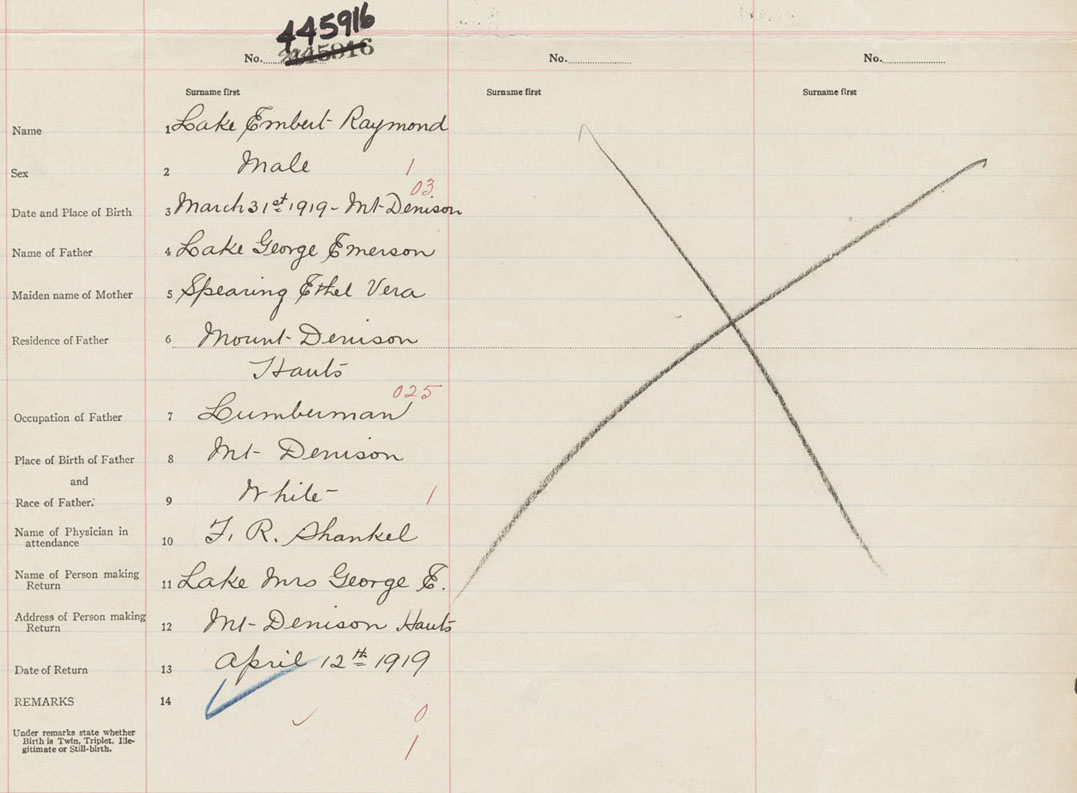 445916
No. 445916
No.
No.
Surname first
Surname first
Surname first
Name 1 Lake Embert Raymond
Sex 2 Male 1
03
Date and Place of Birth 3 March 31st 1919 - Mt Denison
Name of Father 4 Lake George Emerson
Maiden name of Mother 5 Spearing Ethel Vera
Residence of Father 6 Mount Denison
Hants
025
Occupation of Father 7 Lumberman
Place of Birth of Father 8 Mt Denison
and
Race of Father. 9 White 1
Name of Physician in
attendance 10 F. R. Shankel
Name of Person making
Return 11 Lake Mrs George E.
Address of Person making
Return 12 Mt Denison Hants
Date of Return 13 April 12th 1919
REMARKS 14
0
Under remarks state whether
Birth is Twin, Triplet, Ille-
gitimate or Still-birth.
1